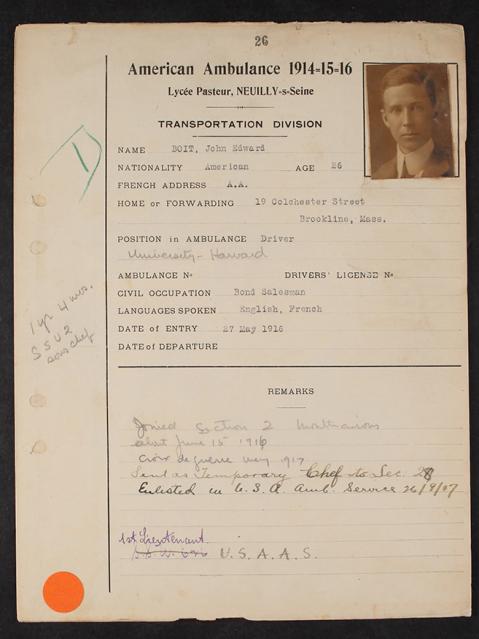 26
American Ambulance 1914=15=16
Lycée Pasteur, NEUILLY-s-Seine
TRANSPORTATION DIVISION
NAME BOIT, John Edward
NATIONALITY American AGE 26
FRENCH ADDRESS A.A.
HOME or FORWARDING 19 Colchester Street
Brookline, Mass.
POSITION in AMBULANCE Driver
University - Harvard
AMBULANCE No DRIVERS' LICENSE No
CIVIL OCCUPATION Bond Salesman
LANGUAGES SPOKEN English, French
DATE of ENTRY 27 May 1916
DATE of DEPARTURE
1 yr 4 mos.
S S U 2
sous chef
REMARKS
Joined Section 2
abut June 15 1916
Croix de guerre 1917
Sent as Temporary Chef to Sec.
Enlisted in U.S.A. Amb. Service 26/9/17
1st Lieutenant
U.S.A.A.S.